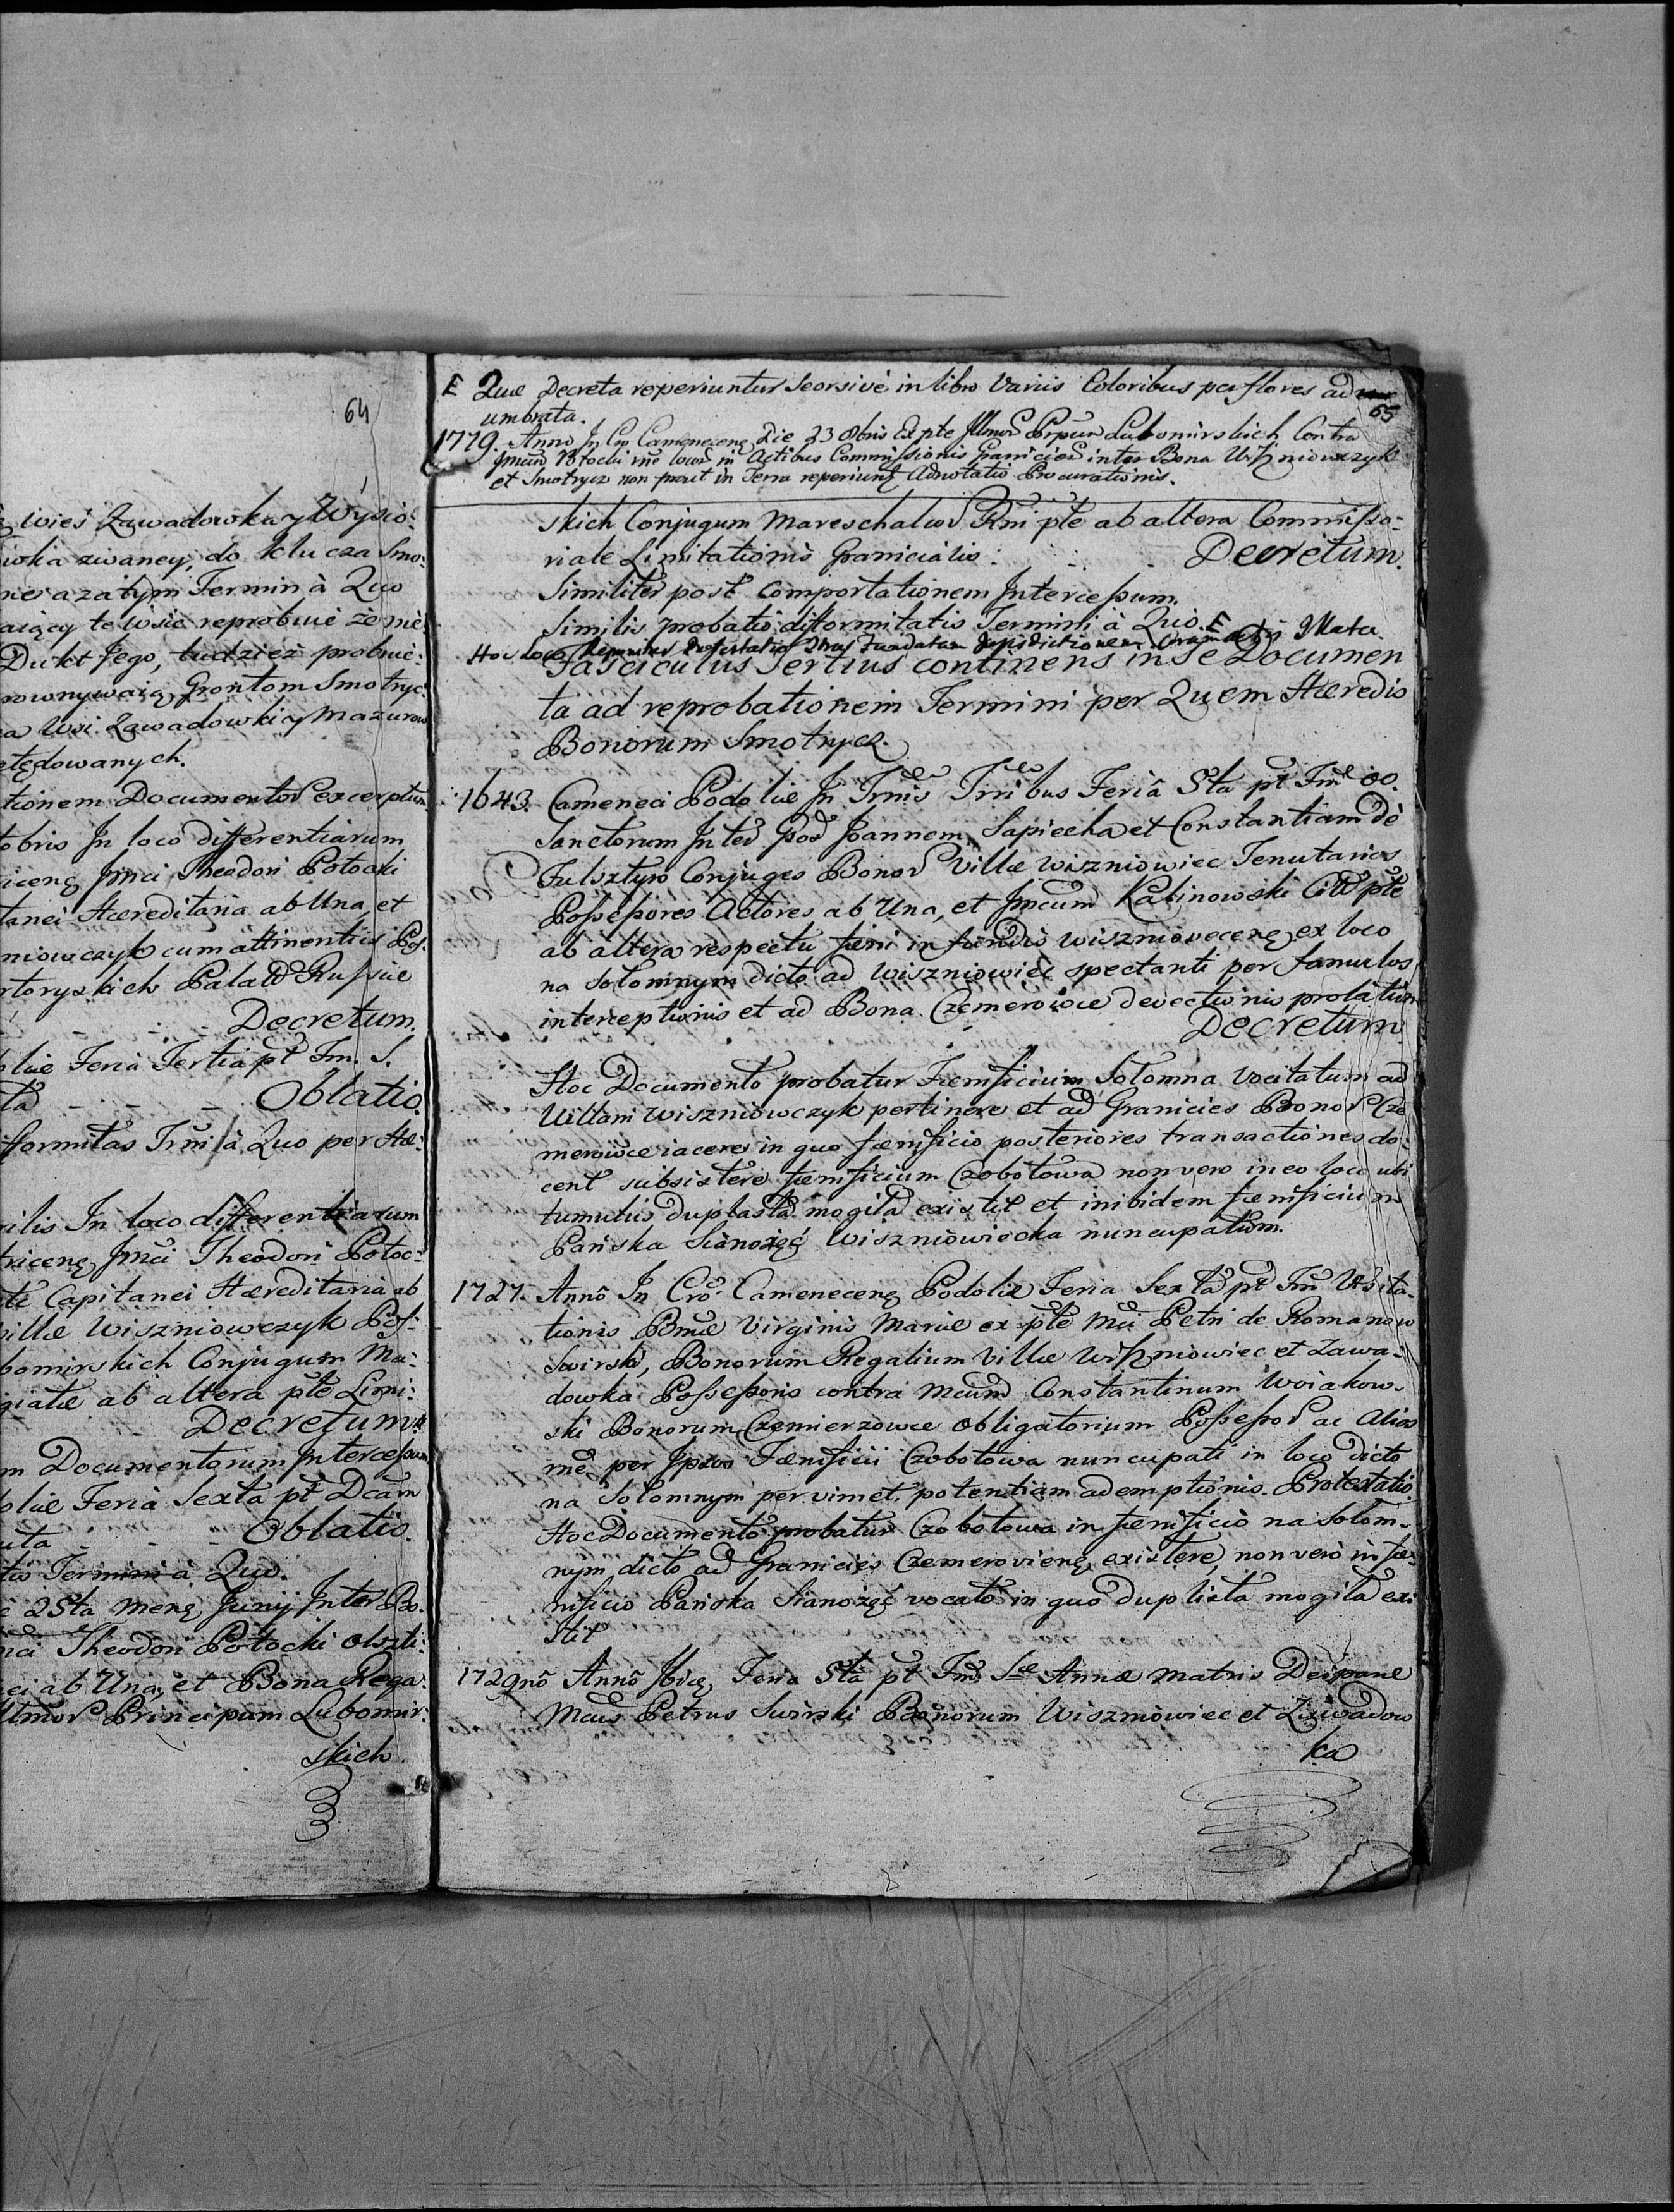 64
wieś Zawadowka y Wysio:
wka zwaney, do klucza Smo:
a zatym Termin à Quo
te wsie reprobuie że nie:
Dukt Jego, tudzież probuie:
rownywaią Grontom Smotryc:
a Wsi Zawadowki y Mazurow
etędowanych.
tionem Documentor excerptum
tobris In loco differentiarum
iceng Jmci Theodori Potocki
tanei Hæreditaria ab Una et
niowczyk cum attinentiis Pos:
rtoryskich Palatt Russiæ
Decretum.
oliæ Feria Tertia pt Fm. S.
ta Oblatio.
fformitas Trmi à Quo per Hæ:
rilis In loco differentiarum
riceng Jmci Theodori Potoc:
Capitanei Hæreditaria ab
villæ Wiszniowczyk Pos:
bomirskich Conjugum Ma:
giatæ ab altera pte Limi:
Decretum.
m Documentorum Intercessum
oliæ Feria Sexta pt Dcam
uta Oblatio.
tis Termini à Quo.
25ta meng Junij Inter Bo.
mci Theodori Potocki Olszti:
ei ab Una, et Bona Rega:
Illmor Principum Lubomir:
skich
E Quæ Decreta reperiuntur seorsivè in libro variis Coloribus per flores ad
65
umbrata.
1779. Anno In Cro Cameneceng Die 23 Obris Ex pte Illmor Prpum Lubomirskich Contra
Jmcum Potocki rne locor in Actibus Commissionis Granicier inter Bona Wiszniowczyk
et Smotrycz non prout in Terra reperiung Adnotatio Procurationis.
skich Conjugum Mareschalcor Rni pte ab altera Commisso:
riale Limitationis Granicialis. Decretum.
Similiter post Comportationem Intercessum.
Similis probatio difformitatis Termini à Quo. E
Hoc loco Reponitur Protestatio Fundatam Jurisdictionem
Fasciculus Tertius continens in se Documen
ta ad reprobationem Termini per Quem Hæredis
Bonorum Smotrycz.
1643. Cameneci Podoliæ In Trnis Trribus Feria 5ta pt Fm OO.
Sanctorum Inter God Joannem Sapiecha et Constantiam de
Fulsztyn Conjuges Bonor Villæ Wiszniowiec Tenutarios
Possessores Actores ab Una, et Jmcum Kalinowski Citt pte
ab altera respectu fæni in fundis wisznioveceng ex loco
na Solomnym dicto ad Wiszniowiec spectanti per famulos
interceptionis et ad Bona Czemerowce devectionis prolatum
Decretum
Hoc Documento probatur Fænificium Solomna vocitatum ad
Villam Wiszniowczyk pertinere et ad Granicies Bonor Cze
merowce iacere in quo fænificio posteriores transactiones do:
cent subsistere fænificium Czobotowa non vero in eo loco ubi
tumulus duplasta mogila existit et inibidem fænificium
Pańska Sianożęć Wiszniowiecka nuncupatum.
1727. Anno In Cro Cameneceng Podoliæ Feria Sexta pt Fm Visita-
tionis Bmæ Virginis Mariæ ex pte Mci Petri de Romanow
Swirski, Bonorum Regalium Villæ Wiszniowiec et Zawa-
dowka Possessoris contra Mcum Constantinum Woiakow-
ski Bonorum Czemierzowce obligatorium Possessor ac Alios
rne per Ipsos Fænificii Czobotowa nuncupati in loco dicto
na Solomnym per vim et potentiam ademptionis. Protestatio.
Hoc Documento probatur Czobotowa in fænificio na Solom-
nym dicto ad Granicies Czemerovieng existere, non vero in fæ:
nificio Pańska Sianożęć vocato in quo duplista mogila exi
stit
1729no Anno Ibidg Feria 5ta pt Fm Sæ Annæ matris Deiparæ
Mcus Petrus Swirski Bonorum Wiszniowiec et Zawadow
ka